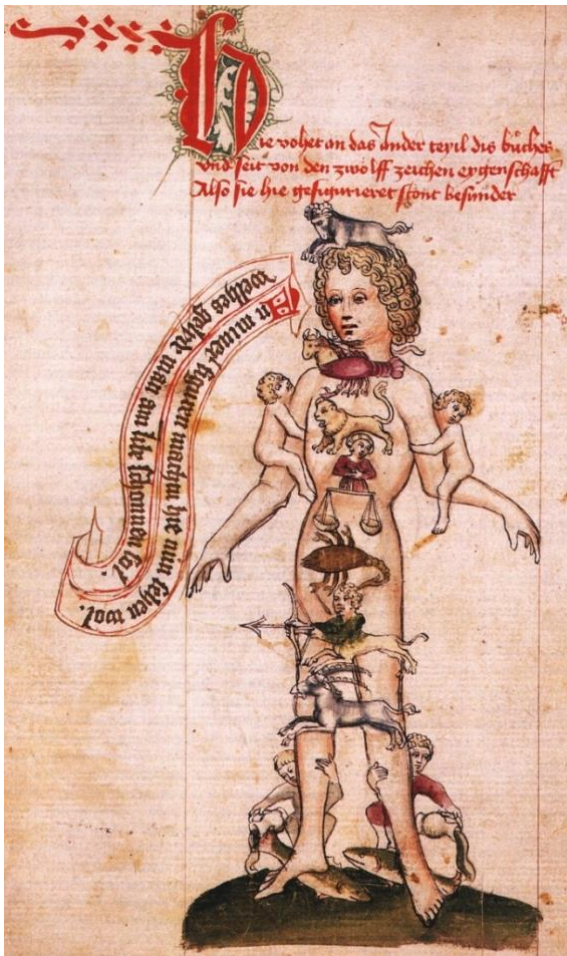 Hie vohet an das Ander teyil dis bůches
vnd seit von den zwölff zeichen eygenschafft
Also sie hie gefigurieret stont besunder
In miner figurer machtu hie nün sehen wol.
welhes gelyde man am lide schonnen sol.